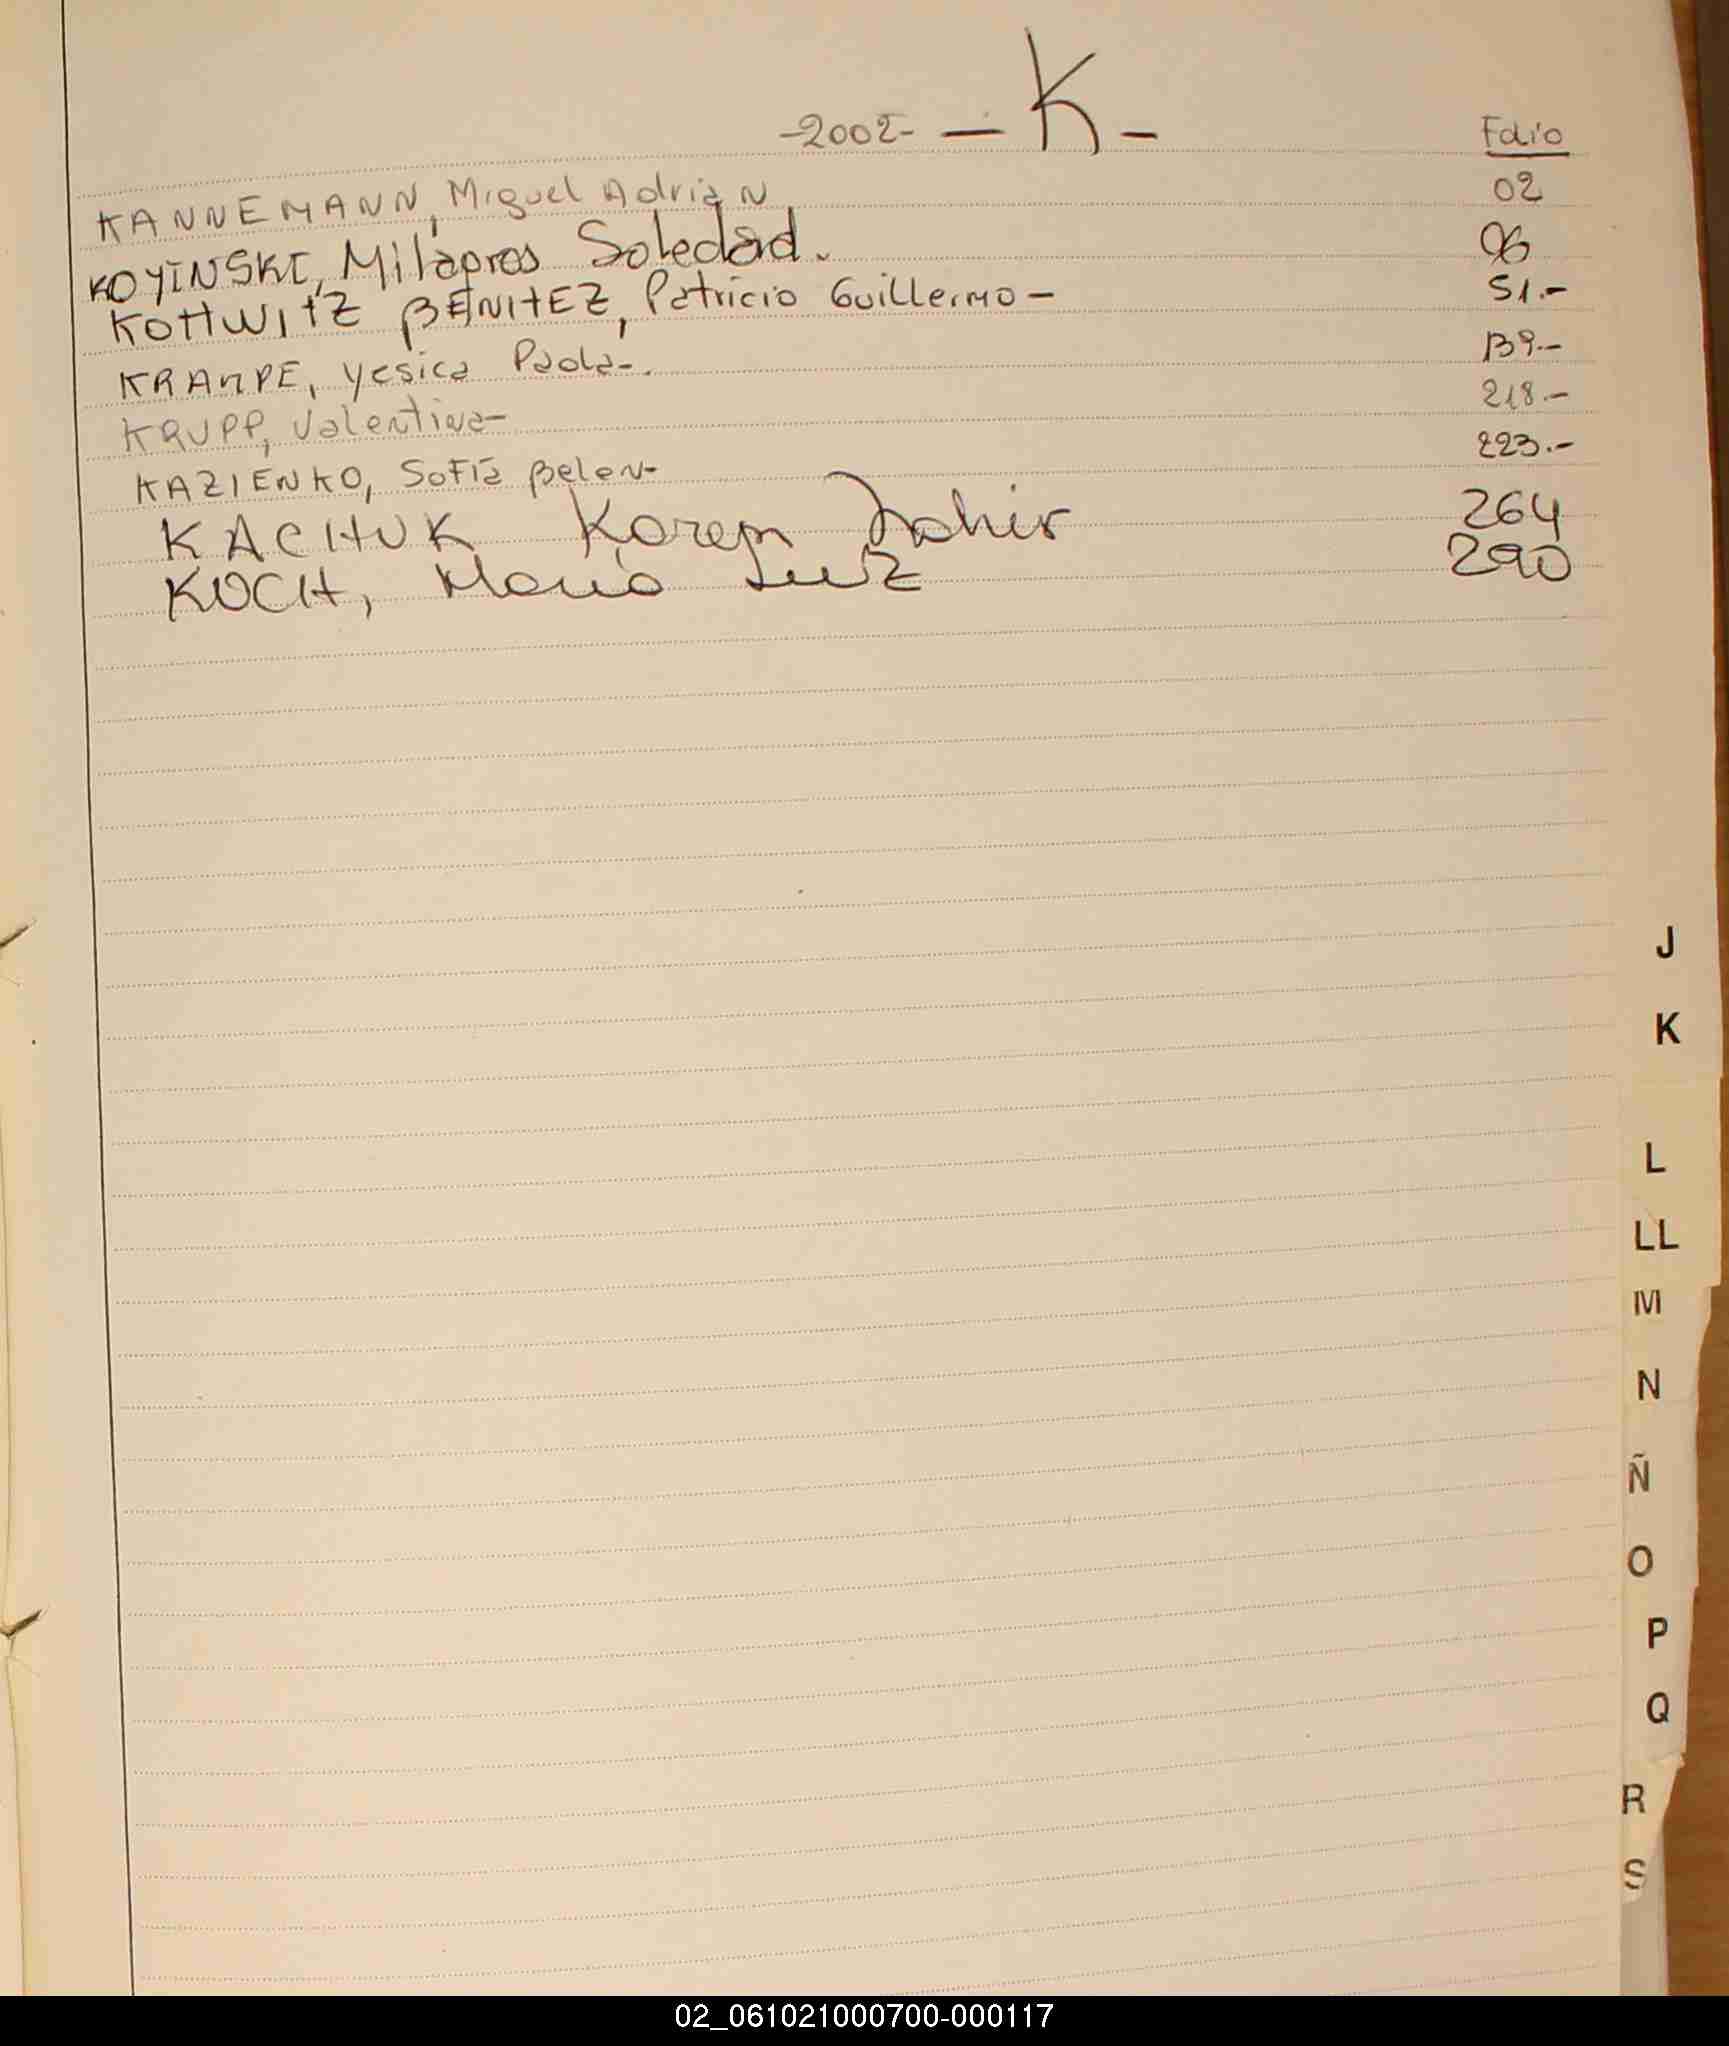 -2002- — K - Folio
KANNEMANN, Miguel Adrian 02
KOYINSKI, Milagros Soledad. 06
KOTTWITZ BENITEZ, Patricio Guillermo - 51.-
KRAMPE, Yesica Paola-. 139.-
KRUPP, Valentina- 218.-
KAZIENKO, Sofía Belen- 223.-
KACHUK Karen 264
KOCH, Maria Luz 290
J
K
L
LL
M
N
Ñ
O
P
Q
R
S
02_061021000700-000117